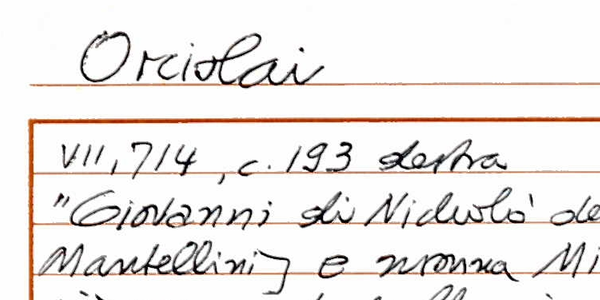 Orciolai
VII, 714, c. 193 destra
"Giovanni di Nicholò de
Mantellini] e monna Mi